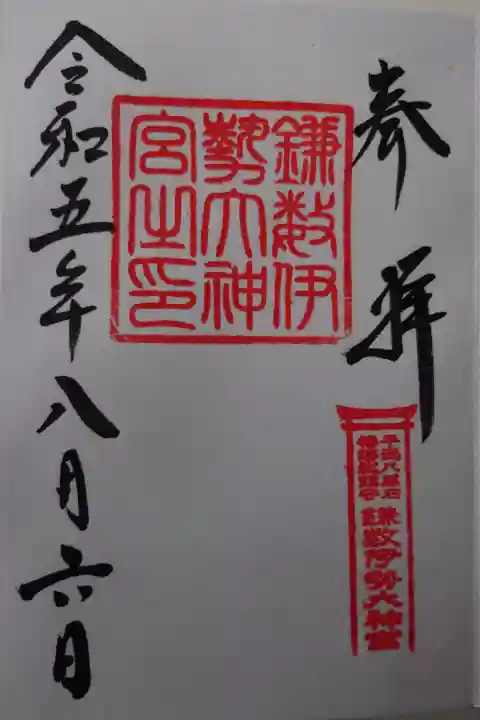 奉拝
鎌数伊
勢大神
宮之印
干潟八萬石
鎌数伊勢大神宮
令和五年八月六日